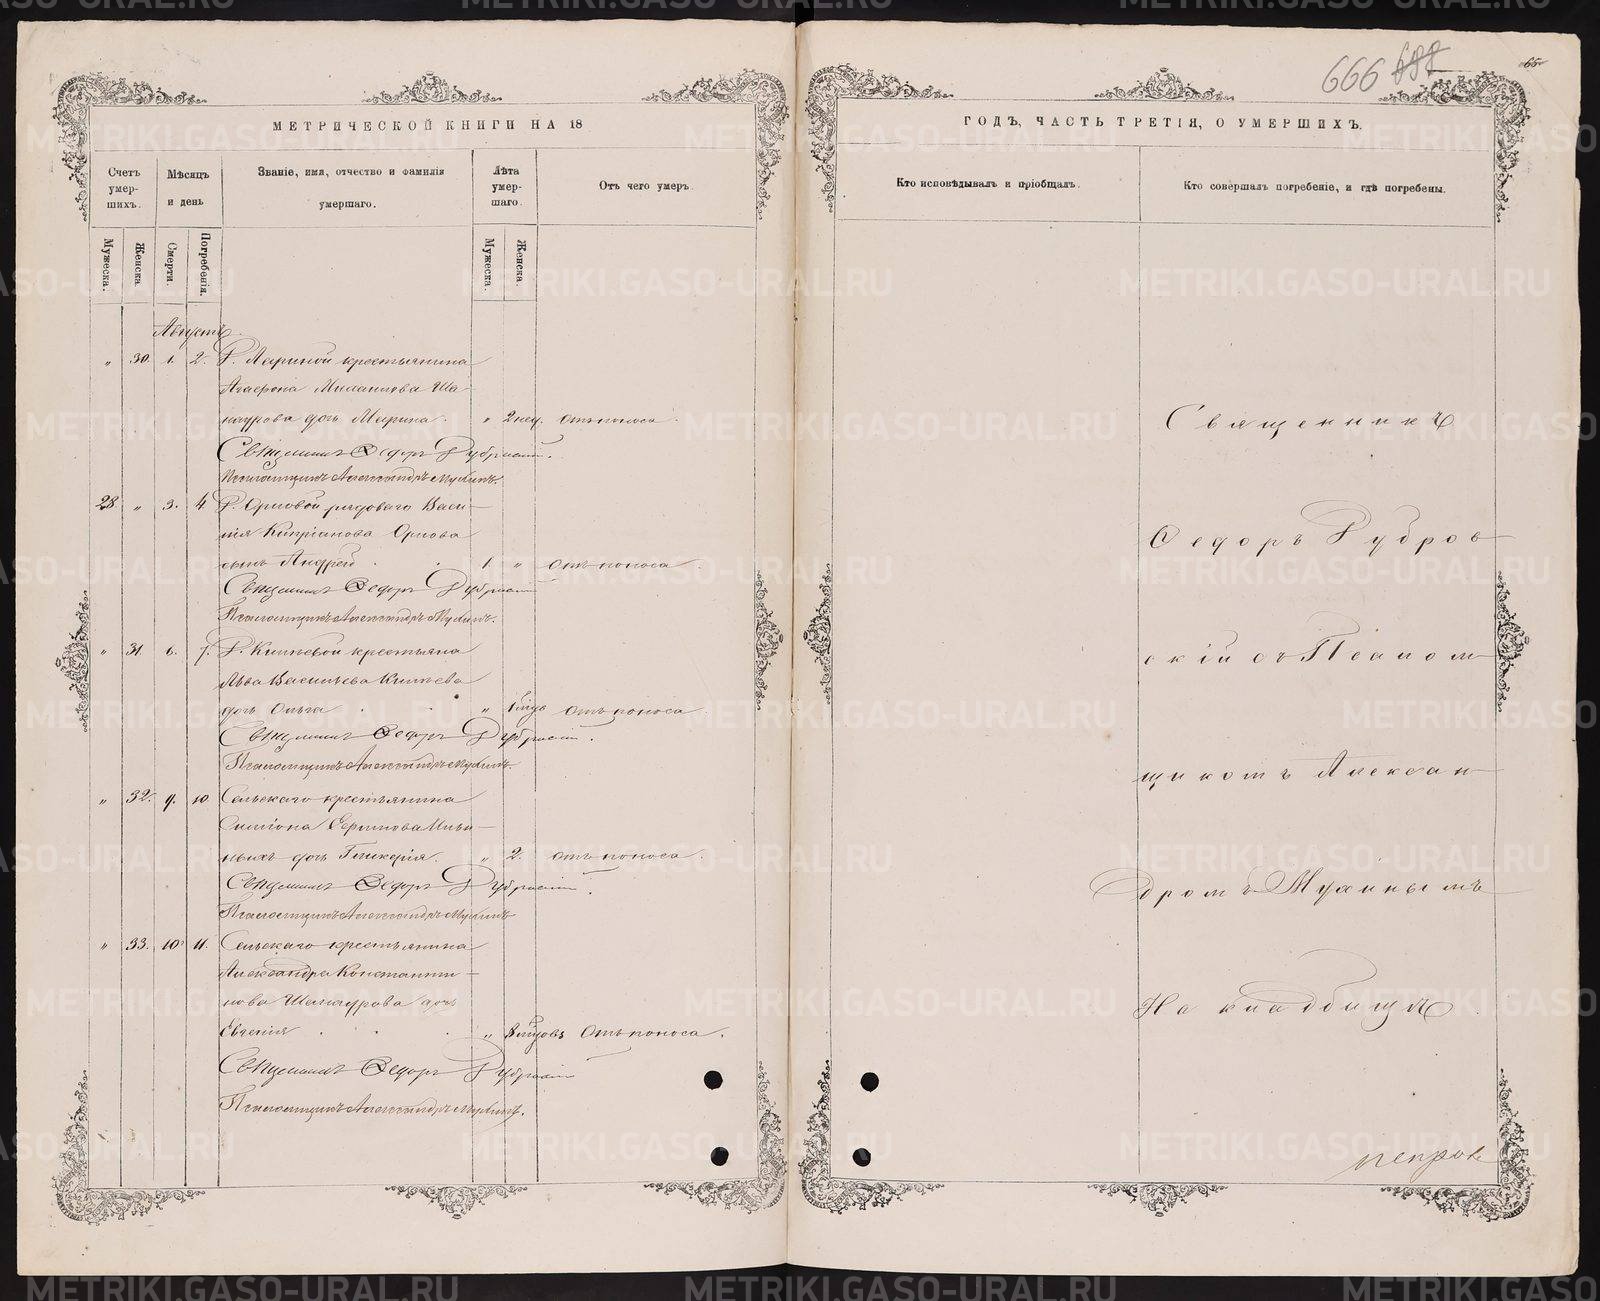 666 688
65
МЕТРИЧЕСКОЙ КНИГИ НА 18
ГОДЪ, ЧАСТЬ ТРЕТІЯ, О УМЕРШИХЪ.
Счетъ умер-шихъ.
Мѣсяцъ и день
Званіе, имя, отчество и фамилія умершаго.
Лѣта умер-шаго.
Отъ чего умеръ.
Кто исповѣдывалъ и пріобщалъ.
Кто совершалъ погребеніе, и гдѣ погребены.
Мужеска.
Женска.
Смерти.
Погребенія.
Мужеска.
Женска.
Августъ
„ 30. 1. 2. крестьянина
Ша-
наурова дочь Марина. „ 2 нед. отъ поноса.
Священникъ Ѳедоръ Рубровскій.
Псаломщикъ Александръ Мухинъ.
28 „ 3. 4 Д. Орловой рядоваго Васи-
лія Кипріанова Орлова
сынъ Андрей. 1. „ отъ поноса.
Священникъ Ѳедоръ Рубровскій
Псаломщикъ Александръ Мухинъ.
„ 31. 6. 7. крестьяна
Льва Васильева
дочь Ольга „ отъ поноса.
Священникъ Ѳедоръ Рубровскій.
Псаломщикъ Александръ Мухинъ.
„ 32. 9. 10. Сельскаго крестьянина
Симіона Ильи-
ныхъ дочь Гликерія. „ 2. отъ поноса.
Священникъ Ѳедоръ Рубровскій.
Псаломщикъ Александръ Мухинъ
„ 33. 10. 11. Сельскаго крестьянина
Александра Константи-
нова Шанаурова дочь
Евгенія „ отъ поноса.
Священникъ Ѳедоръ Рубровскій
Псаломщикъ Александръ Мухинъ.
Священникъ
Ѳедоръ Рубров
скій съ Псалом
щикомъ Алексан
дромъ Мухинымъ
На кладбищѣ
METRIKI.GASO-URAL.RU